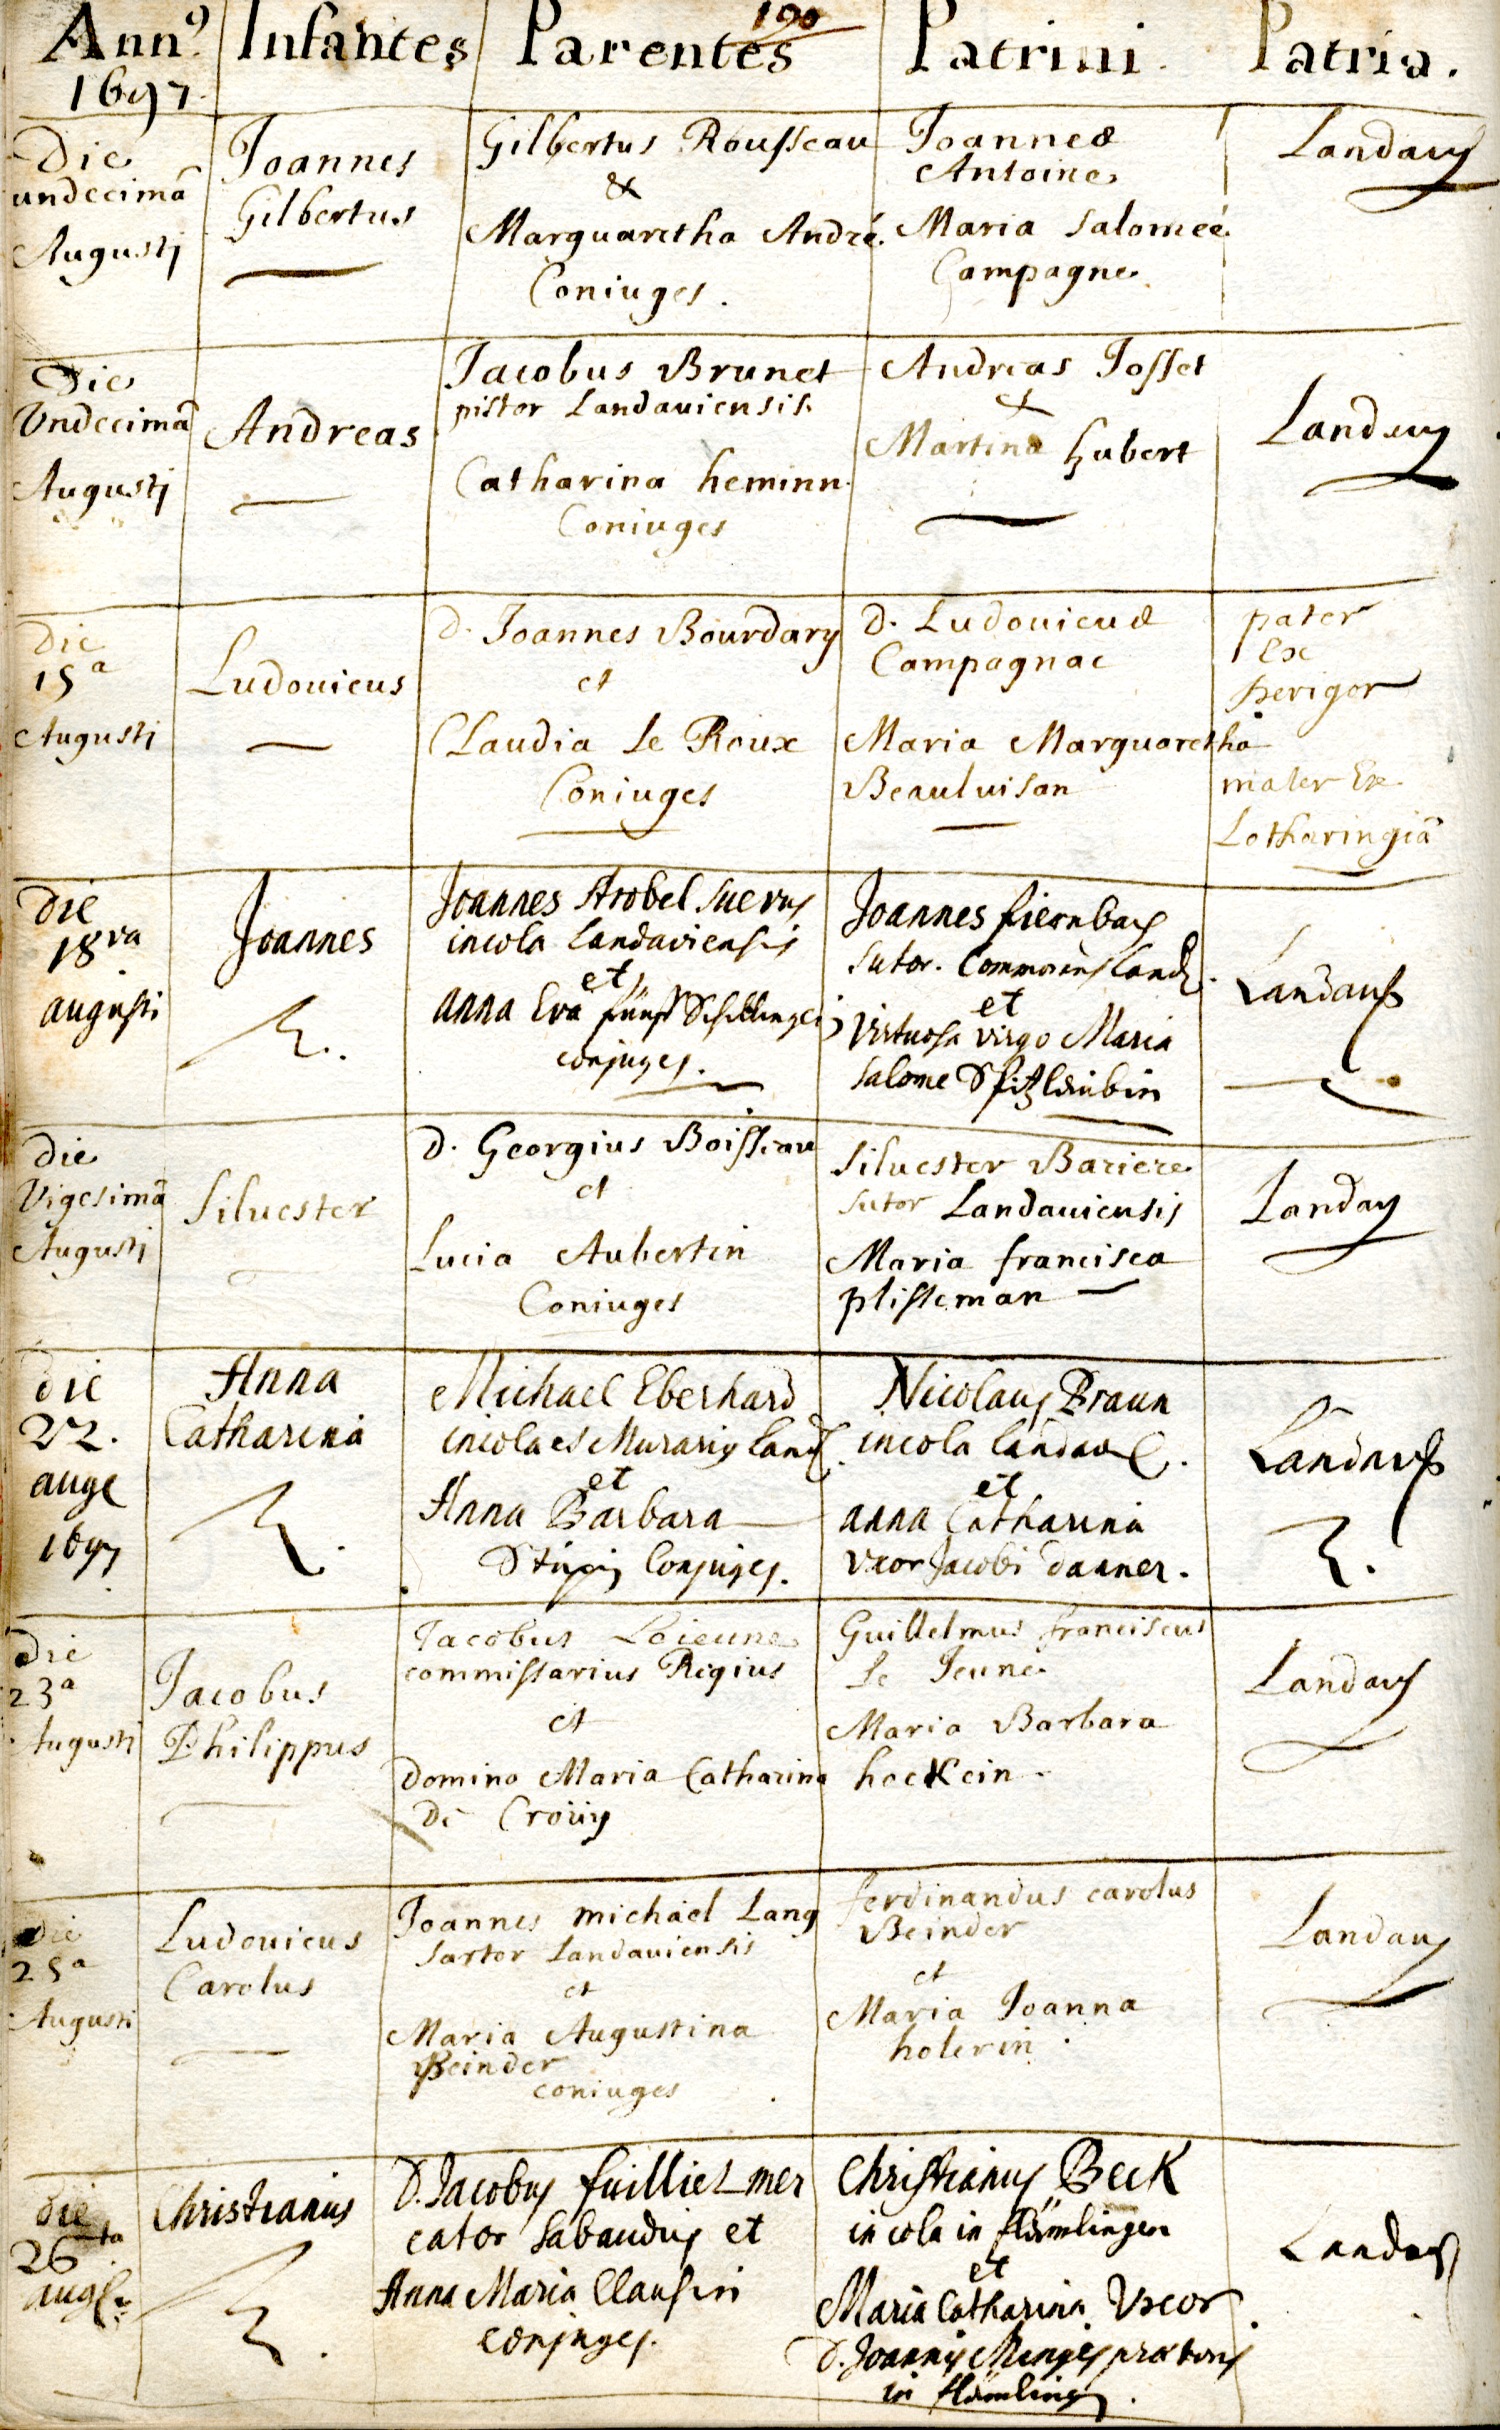 190
Anno Infantes Parentes Patrini Patria.
1697
Die
undecimâ
Augustj
Joannes
Gilbertus
Gilbertus Rousseau
&
Marguaretha André
Coniuges.
Joannes
Antoine
Maria Salomeé
Campagne
Landaus
Die
Vndecimâ
Augustj
Andreas
Jacobus Brunet
pistor Landauiensis
Catharina heminn
Coniuges
Andreas Josset
&
Martina Hubert
Landaus
Die
15a
Augustj
Ludouicus
D. Joannes Bourdary
et
Claudia le Roux
Coniuges
D. Ludouicus
Campagnac
Maria Marguaretha
Beauluisan
pater
Ex
perigor
mater Ex
Lotharingiâ
die
18va
augusti
Joannes
Joannes Strobel Suevus
incola Landaviensis
et
anna Eva
conjuges.
Joannes
Sutor. Commorans Land.
et
Virtuosa virgo Maria
Salome
Landaus
Die
Vigesimâ
Augustj
Siluester
D. Georgius Boisseau
et
Lucia Aubertin
Coniuges
Siluester Bariere
sutor Landauiensis
Maria francisca
plisseman
Landau
die
22.
aug
1697
Anna
Catharina
Michael Eberhard
incola et Murarius Land.
et
Anna Barbara
Conjuges.
Nicolaus Braun
incola Landav.
et
anna Catharina
vxor Jacobi Danner.
Landaus
Die
23a
Augustj
Jacobus
Philippus
Jacobus Leieune
commissarius Regius
et
Domina Maria Catharina
De Croüy
Guillelmus franciscus
le Jeune
Maria Barbara
hockein
Landaus
Die
25a
Augusti
Ludouicus
Carolus
Joannes michäel Lang
sartor Landauiensis
et
Maria Augustina
Beinder
coniuges
ferdinandus carolus
Beinder
et
Maria Joanna
holerin
Landaus
die
26ta
aug
Christianus
D. Jacobus fuilliet mer
cator Sabaudus et
Anna Maria Clausin
conjuges.
Christianus Beck
incola in flämlingen
et
Maria Catharina Vxor
D. Joannis Menges prætoris
in flämling.
Landaus